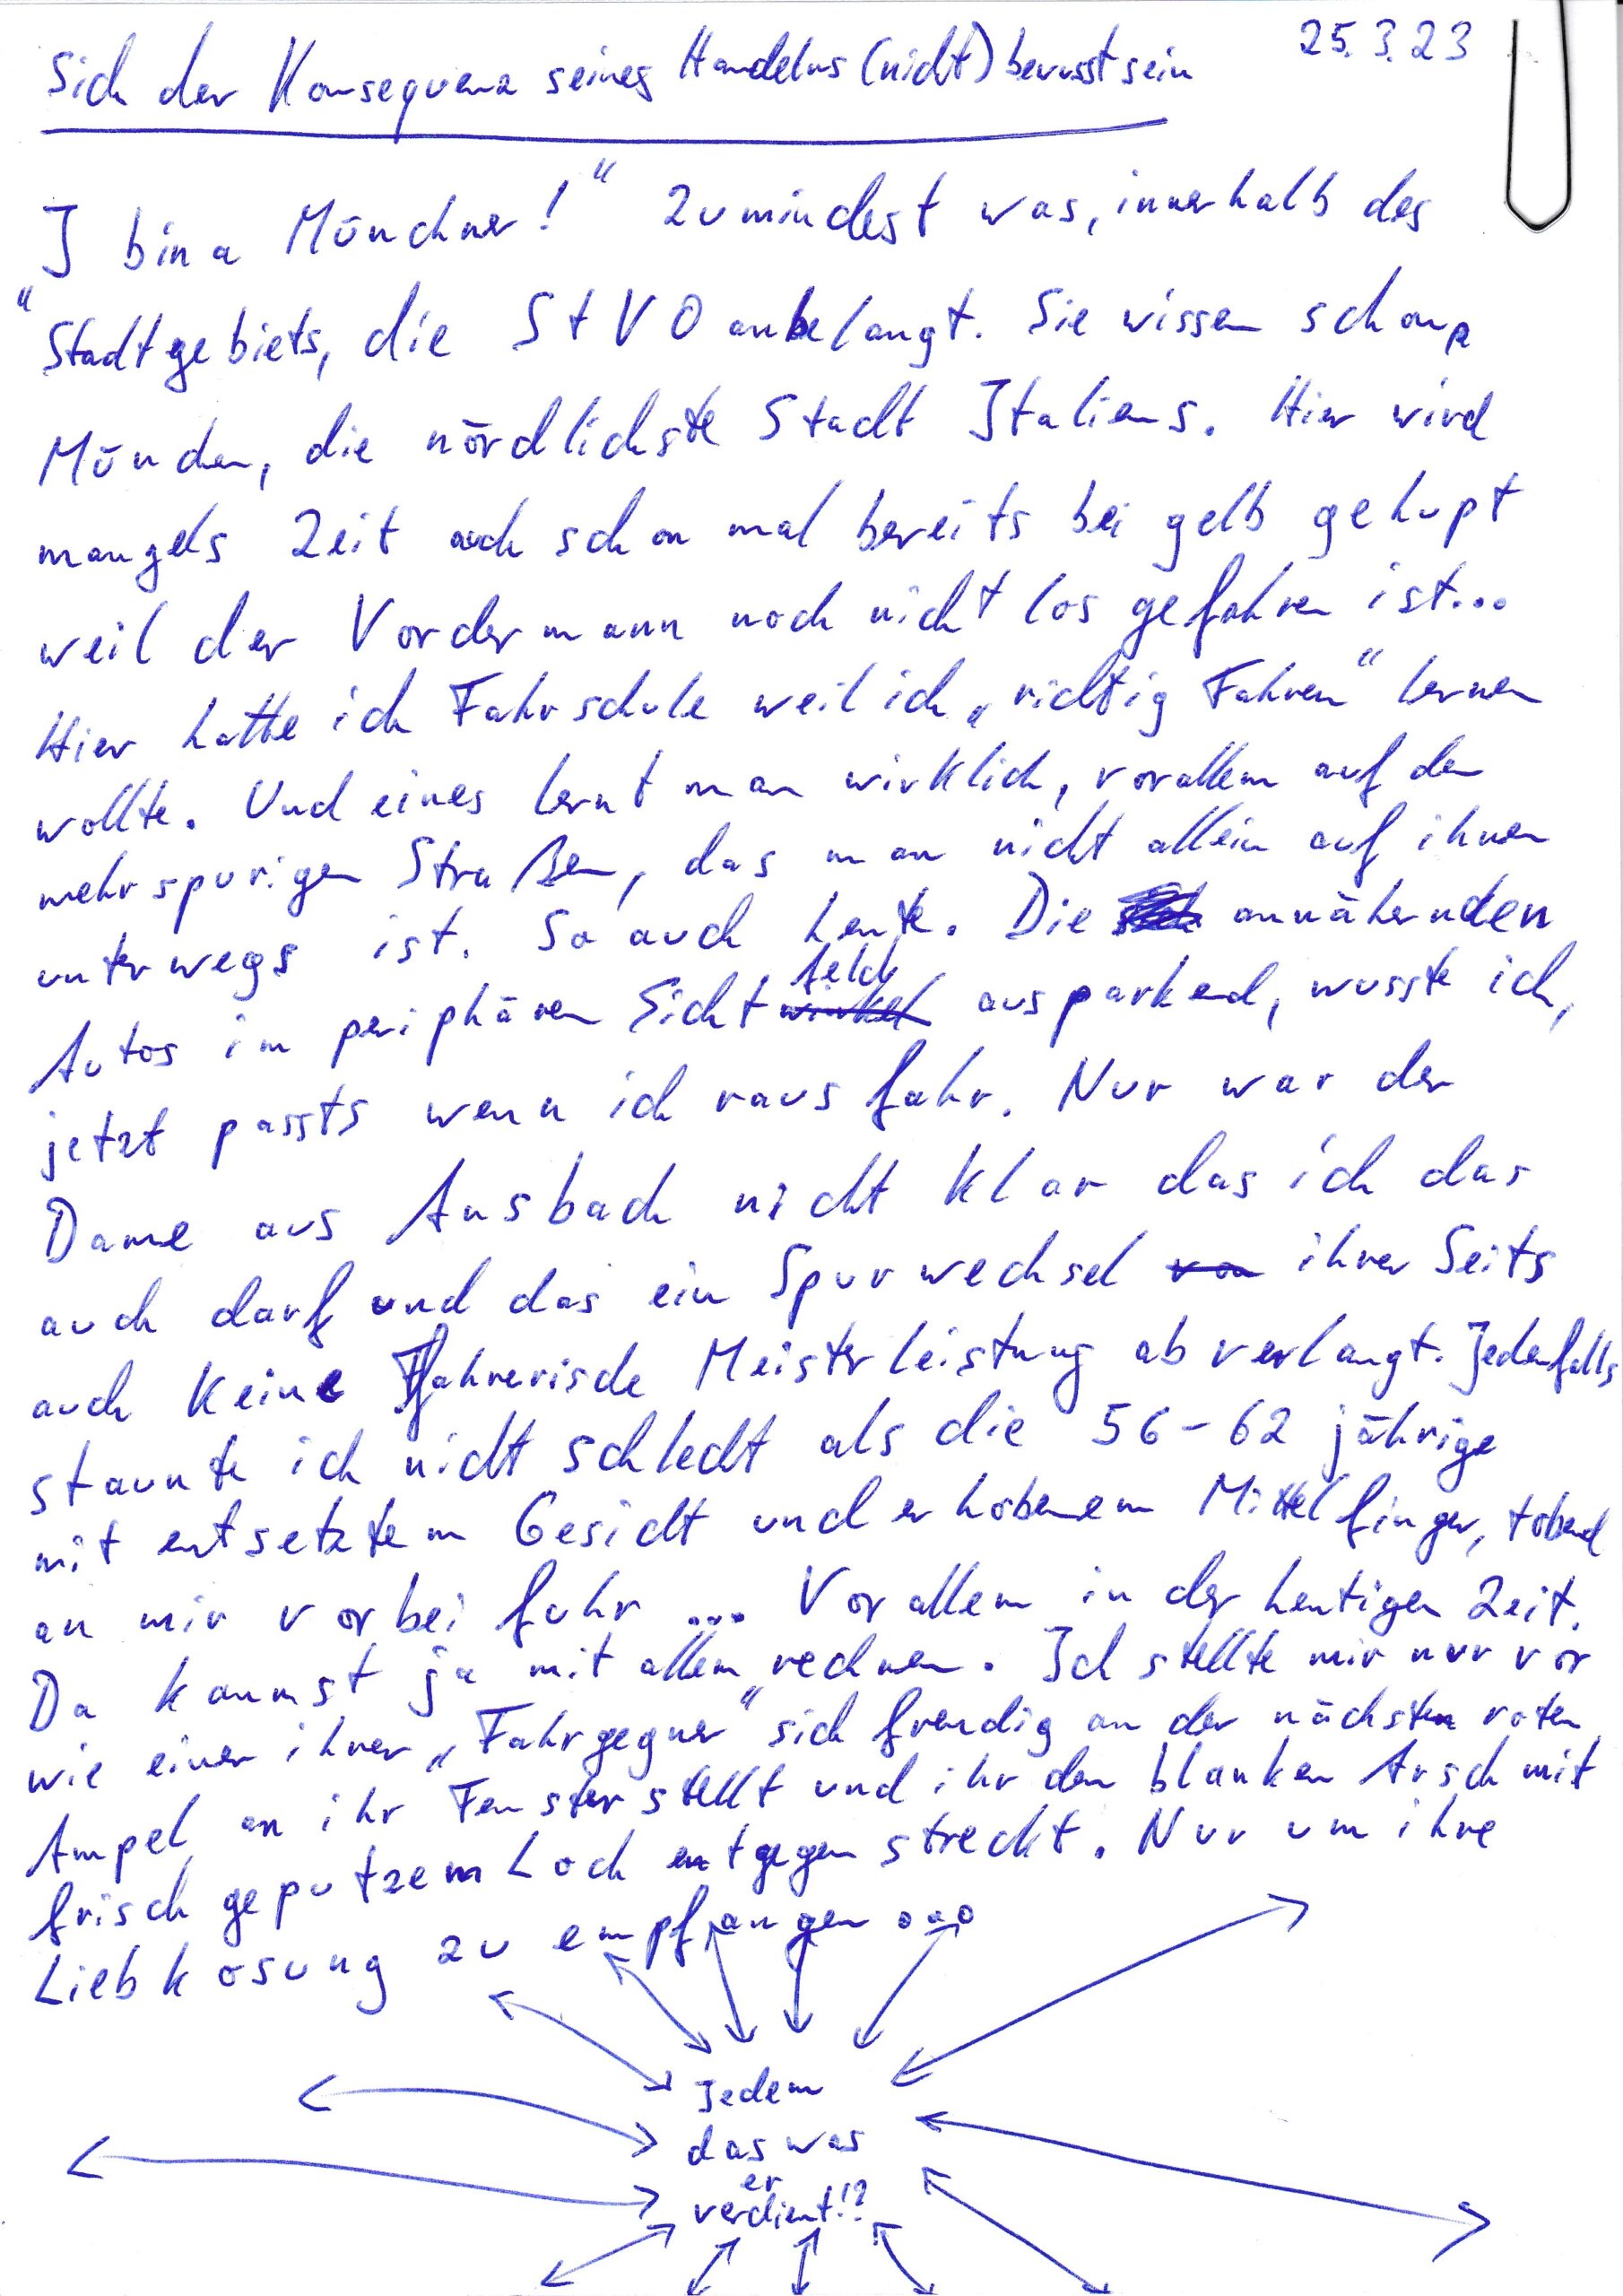 Sich der Konsequenz seines Handelns (nicht) bewusst sein 25.3.23
„I bin a Münchner!“ Zumindest was, innerhalb des
Stadtgebiets, die StVO anbelangt. Sie wissen schon,
München, die nördlichste Stadt Italiens. Hier wird
mangels Zeit auch schon mal bereits bei gelb gehupt
weil der Vordermann noch nicht los gefahren ist...
Hier hatte ich Fahrschule weil ich „richtig Fahren“ lernen
wollte. Und eines lernt man wirklich, vorallem auf den
mehrspurigen Straßen, das man nicht allein auf ihnen
unterwegs ist. So auch heute. Die annähernden
Autos im periphären Sichtfeld ausparkend, wusste ich,
jetzt passts wenn ich raus fahr. Nur war der
Dame aus Ansbach nicht klar das ich das
auch darf und das ein Spurwechsel ihrer Seits
auch keine fahrerische Meisterleistung abverlangt. Jedenfalls
staunte ich nicht schlecht als die 56-62 jährige
mit entsetztem Gesicht und erhobenem Mittelfinger, tobend
an mir vorbei fuhr ... Vor allem in der heutigen Zeit.
Da kannst ja mit allem rechnen. Ich stellte mir nur vor
wie einer ihrer „Fahrgegner“ sich freudig an der nächsten roten
Ampel an ihr Fenster stellt und ihr den blanken Arsch mit
frisch geputzem Loch entgegen streckt. Nur um ihre
Liebkosung zu empfangen ...
Jedem
das was
er
verdient!?